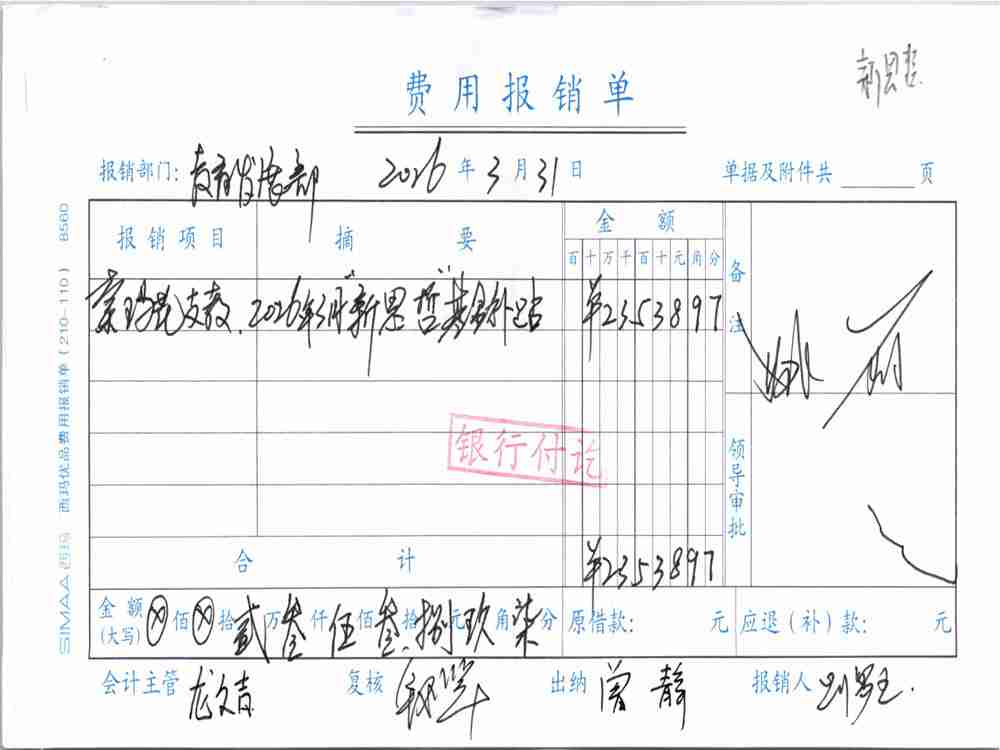 费用报销单
新思哲
报销部门: 教育发展部 2026 年 3 月 31 日 单据及附件共 页
报销项目 摘 要 金 额 备注
百 十 万 千 百 十 元 角 分
支教. 2026年3月"新思哲"基金补贴 ¥2353897
银行付讫
领导审批
合 计 ¥2353897
金额(大写) ⊗ 佰 ⊗ 拾 贰 万 叁 仟 伍 佰 叁 拾 捌 元 玖 角 柒 分 原借款: 元 应退(补)款: 元
会计主管 龙文吉 复核 出纳 曾静 报销人
SIMAA 西玛 西玛优品费用报销单(210-110) 8560